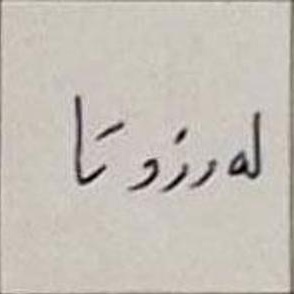 لەرزوتا